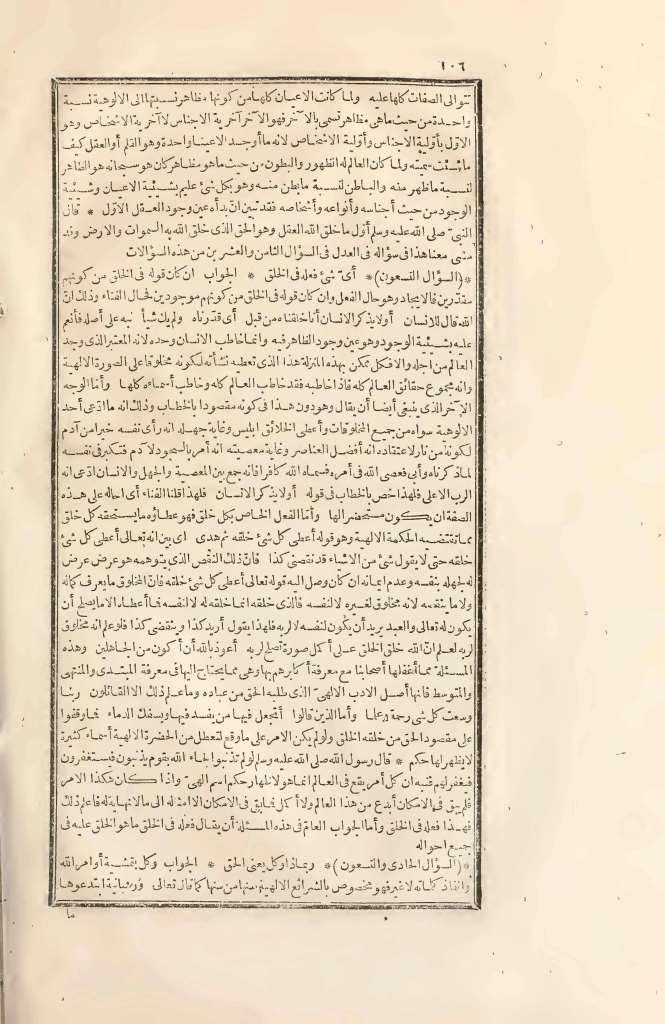 ١٠٦
تتوالى الصفات كلها عليه ولما كانت الاعيان كلها من كونها مظاهر نسبتها الى الالوهية نسبة
واحدة من حيث ما هى مظاهر تسمى بالآخر فهو الآخر آخرية الاجناس لا آخرية الاشخاص وهو
الاول بأولية الاجناس وأولية الاشخاص لانه ما أوجد الا عينا واحدة وهو القلم أو العقل كيف
ما شئت سميته ولما كان العالم له الظهور والبطون من حيث ما هو مظاهر كان هو سبحانه هو الظاهر
لنسبة ما ظهر منه والباطن لنسبة ما بطن منه وهو بكل شئ عليم بشيئية الاعيان وشيئية
الوجود من حيث أجناسه وأنواعه وأشخاصه فقد تبين انّ بدأه عين وجود العقل الاول * قال
النبىّ صلى الله عليه وسلم أول ما خلق الله العقل وهو الحق الذى خلق الله به السموات والارض وقد
مشى معنا هذا فى سؤاله فى العدل فى السؤال الثامن والعشرين من هذه السؤالات
*(السؤال التسعون)* أىّ شئ فعله فى الخلق * الجواب ان كان قوله فى الخلق من كونهم
مقدّرين فالايجاد وهو حال الفعل وان كان قوله فى الخلق من كونهم موجودين فحال الفناء وذلك انّ
الله قال للانسان أولا يذكر الانسان أنا خلقناه من قبل أى قدّرناه ولم يك شيأ نبه على أصله فأنعم
عليه بشيئية الوجود وهو عين وجود الظاهر فيه وانما خاطب الانسان وحده لانه المعتبر الذى وجد
العالم من أجله والا فكل ممكن بهذه المنزلة هذا الذى تعطيه نشأته لكونه مخلوقا على الصورة الالهية
وانه مجموع حقائق العالم كله فاذا خاطبه فقد خاطب العالم كله وخاطب أسماءه كلها وأما الوجه
الآخر الذى ينبغى أيضا أن يقال وهو دون هذا فى كونه مقصودا بالخطاب وذلك انه ما ادّعى أحد
الالوهية سواه من جميع المخلوقات وأعطى الخلائق ابليس وغاية جهله انه رأى نفسه خيرا من آدم
لكونه من نار لاعتقاده انه أفضل العناصر وغاية معصيته انه أمر بالسجود لآدم فتكبر فى نفسه
لما ذكرناه وأبى فعصى الله فى أمره فسماه الله كافرا فانه جمع بين المعصية والجهل والانسان ادّعى انه
الرب الاعلى فلهذا خص بالخطاب فى قوله أولا يذكر الانسان فلهذا قلنا الفناء أى احاله على هذه
الصفة ان يكون مستحضرا لها وأما الفعل الخاص بكل خلق فهو عطاؤه ما يستحقه كل خلق
مما تقتضيه الحكمة الالهية وهو قوله أعطى كل شئ خلقه ثم هدى اى بين انه تعالى أعطى كل شئ
خلقه حتى لا يقول شئ من الاشياء قد نقصنى كذا فانّ ذلك النقص الذى يتوهمه هو عرض عرض
له لجهله بنفسه وعدم ايمانه ان كان وصل اليه قوله تعالى أعطى كل شئ خلقه فانّ المخلوق ما يعرف كماله
ولا ما ينقصه لانه مخلوق لغيره لا لنفسه فالذى خلقه انما خلقه له لا لنفسه فما أعطاه الا ما يصلح أن
يكون له تعالى والعبد يريد أن يكون لنفسه لا لربه فلهذا يقول أريد كذا وينقصنى كذا فلو علم انه مخلوق
لربه لعلم انّ الله خلق الخلق على أكمل صورة تصلح لربه أعوذ بالله أن أكون من الجاهلين وهذه
المسئلة مما أغفلها أصحابنا مع معرفة أكابرهم بها وهى مما يحتاج اليها فى معرفة المبتدى والمنتهى
والمتوسط فانها أصل الادب الالهىّ الذى طلبه الحق من عباده وما علم ذلك الا القائلون ربنا
وسعت كل شئ رحمة وعلما وأما الذين قالوا أتجعل فيها من يفسد فيها ويسفك الدماء فما وقفوا
على مقصود الحق من خلقه الخلق ولو لم يكن الامر على ما وقع لتعطل من الحضرة الالهية أسماء كثيرة
لا يظهر لها حكم * قال رسول الله صلى الله عليه وسلم لو لم تذنبوا لجاء الله بقوم يذنبون فيستغفرون
فيغفر لهم فنبه ان كل أمر يقع فى العالم انما هو لاظهار حكم اسم الهىّ واذا كان هكذا الامر
فلم يبق فى الامكان أبدع من هذا العالم ولا أكمل فما بقى فى الامكان الا أمثاله الى ما لا نهاية له فاعلم ذلك
فهذا فعله فى الخلق وأما الجواب العامّ فى هذه المسئلة أن يقال فعله فى الخلق ما هو الخلق عليه فى
جميع احواله
*(السؤال الحادى والتسعون)* وبماذا وكل يعنى الحق * الجواب وكل بتمشية أوامر الله
وانفاذ كلماته لا غير فهو مخصوص بالشرائع الالهية سنها من سنها كما قال تعالى ورهبانية ابتدعوها
ما